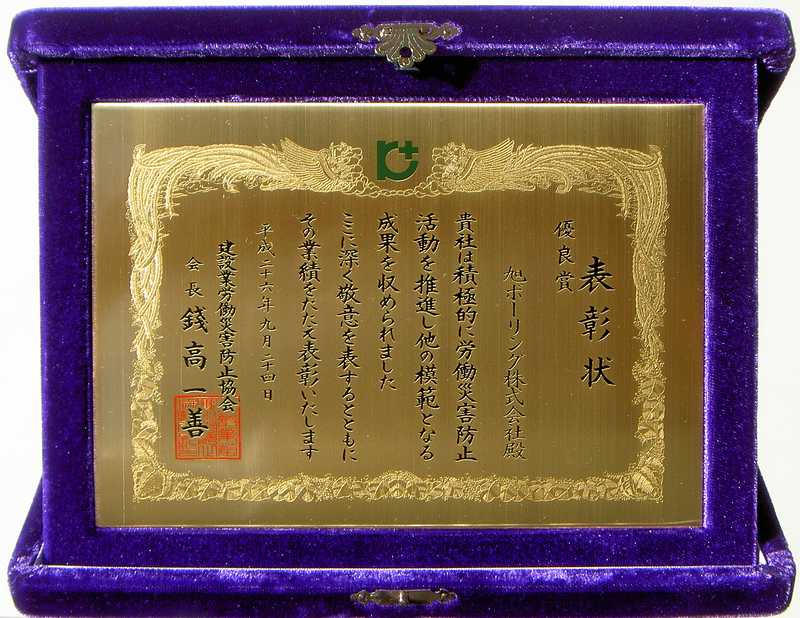 表彰状
優良賞
旭ボーリング株式会社殿
貴社は積極的に労働災害防止
活動を推進し他の模範となる
成果を収められました
ここに深く敬意を表するとともに
その業績をたたえ表彰いたします
平成二十六年九月二十四日
建設業労働災害防止協会
会長 錢高一善